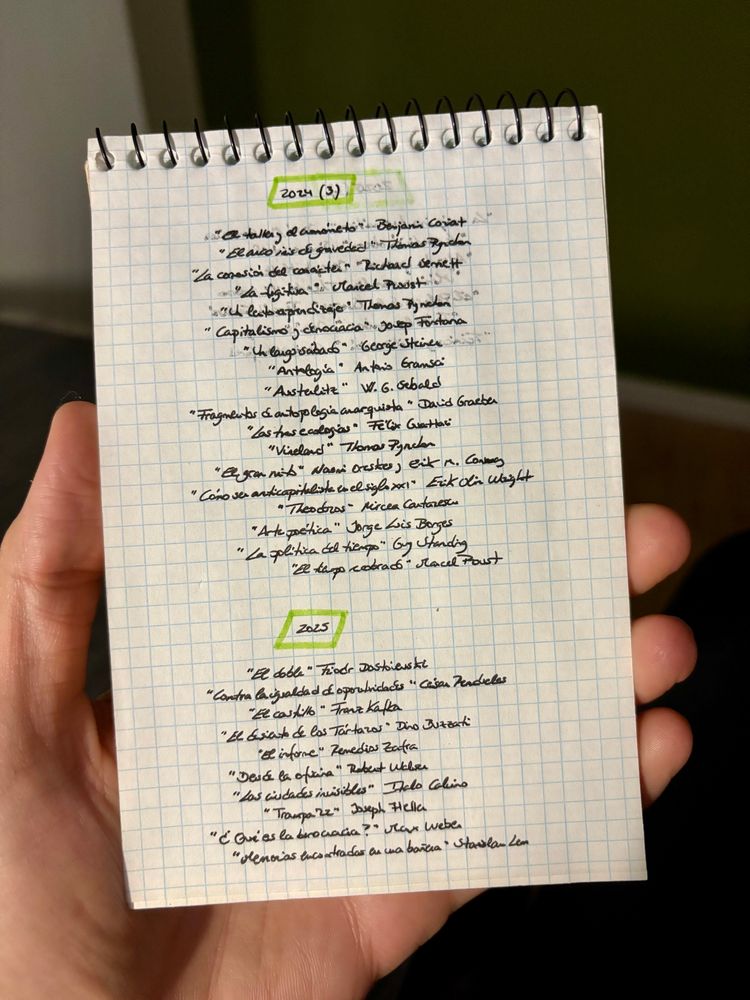 2024 (3)
"El taller y el cronómetro" Benjamin Coriat
"El arco iris de gravedad" Thomas Pynchon
"La corrosión del carácter" Richard Sennett
"La fugitiva" Marcel Proust
"Un lento aprendizaje" Thomas Pynchon
"Capitalismo y democracia" Josep Fontana
"Un largo sábado" George Steiner
"Antología" Antonio Gramsci
"Austerlitz" W. G. Sebald
"Fragmentos de antropología anarquista" David Graeber
"Las tres ecologías" Félix Guattari
"Vineland" Thomas Pynchon
"El gran mito" Naomi Oreskes y Erik M. Conway
"Cómo ser anticapitalista en el siglo XXI" Erik Olin Wright
"Theodoros" Mircea Cartarescu
"Arte poética" Jorge Luis Borges
"La política del tiempo" Guy Standing
"El tiempo recobrado" Marcel Proust
2025
"El doble" Fiodr Dostoievski
"Contra la igualdad de oportunidades" César Rendueles
"El castillo" Franz Kafka
"El desierto de los Tártaros" Dino Buzzati
"El informe" Remedios Zafra
"Desde la oficina" Robert Walser
"Las ciudades invisibles" Italo Calvino
"Trampa 22" Joseph Heller
"¿Qué es la burocracia?" Max Weber
"Memorias encontradas en una bañera" Stanislaw Lem